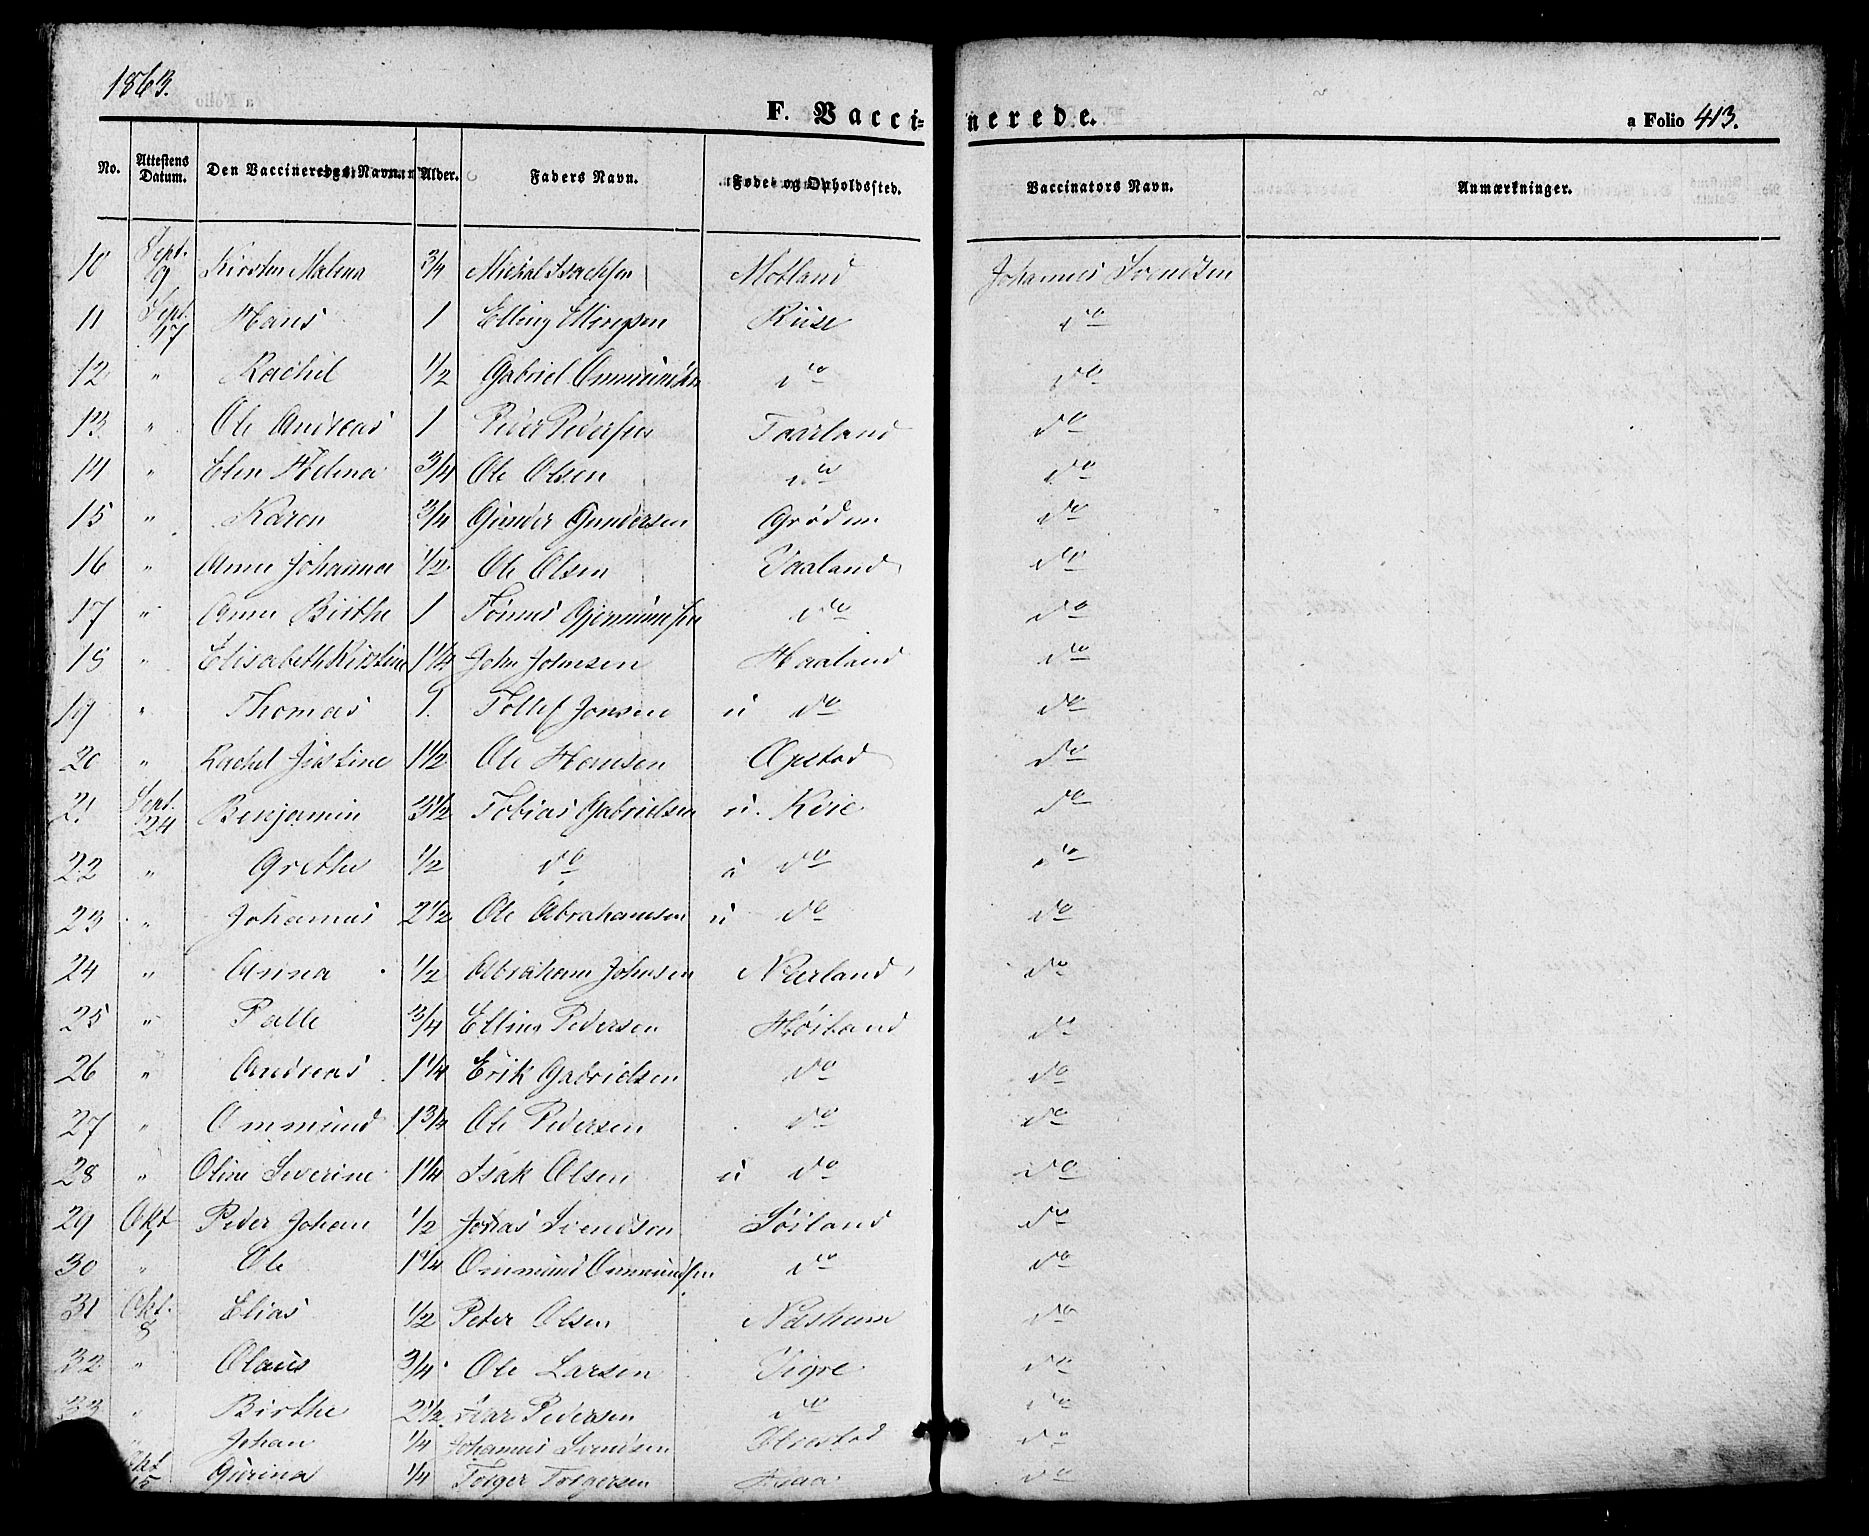 1863.
F. Vaccinerede.
a Folio 413.
No. Attestens Datum. Den Vaccineredes Navn. Alder. Faders Navn. Føde- og Opholdssted. Vaccinators Navn. Anmærkninger.
10 Sept. 9 Kirsten Malena 3/4 Michal Isachsen Motland Johannes Svendsen
11 Sept. 17 Hans 1 Elling Ellingsen Riise do
12 " Rachel 1/2 Gabriel Ommundsen do do
13 " Ole Andreas 1 Peder Pedersen Taarland do
14 " Elen Helena 3/4 Ole Olsen do do
15 " Karen 3/4 Gunder Gundersen Grødem do
16 " Anne Johanna 1/2 Ole Olsen do
17 " Anne Birthe 1 Tønnes Gjermundsen do do
18 " Elisabeth Kirstine 1 1/4 John Johnsen Haaland do
19 " Thomas 1. Tollef Jonsen u do do
20 " Rachel Justine 1 1/2 Ole Hansen Opstad do
21 Sept. 24 Benjamin 3 1/2 Tobias Gabrielsen u. do
22 " Grethe 1/2 do u do do
23 " Johannes 2 1/2 Ole Abrahamsen u do do
24 " Anna 1/2 Abraham Johnsen Nærland do
25 " Palle 3/4 Elling Pedersen Høiland do
26 " Andreas 1 1/4 Erik Gabrielsen do do
27 " Ommund 1 3/4 Ole Pedersen do do
28 " Oline Severine 1 1/4 Isak Olsen u do do
29 Okt 1 Peder Johan 1/2 Jonas Svendsen Søiland do
30 " Ole 1 1/4 Ommund Ommundsen do do
31 Okt. 8 Elias 1/2 Peter Olsen Næsheim do
32 " Olaus 3/4 Ole Larsen Vigre do
33 " Birthe 2 1/2 Pedersen do do
Johan 1/4 Johannes Svendsen do
Okt 15 Gurina 1/4 Torger Torgersen do